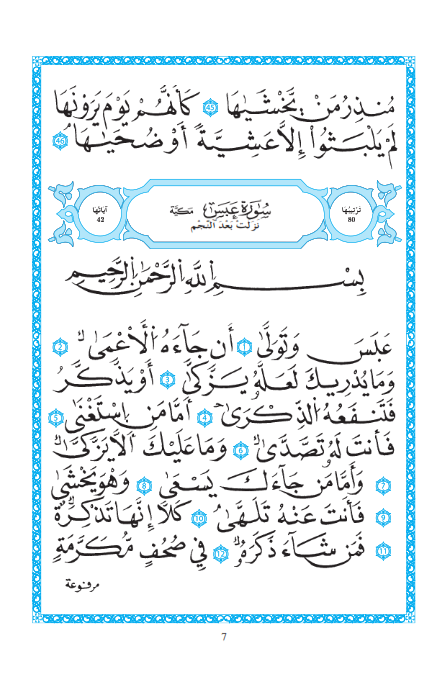 مُنذِرُ مَنْ يَّخْشَىٰهَا 45 كَأَنَّهُمْ يَوْمَ يَرَوْنَهَا
لَمْ يَلْبَثُوٓا۟ إِلَّا عَشِيَّةً أَوْ ضُحَىٰهَا 46
تَرْتِيبُهَا 80
سُورَةُ عَبَسَ مَكِّيَّة
نَزَلَتْ بَعْدَ النَّجْمِ
آيَاتُهَا 42
بِسْمِ اللَّهِ الرَّحْمَٰنِ الرَّحِيمِ
عَبَسَ وَتَوَلَّىٰ 1 أَن جَآءَهُ الْأَعْمَىٰ 2
وَمَا يُدْرِيكَ لَعَلَّهُ يَزَّكَّىٰ 3 أَوْ يَذَّكَّرُ
فَتَنفَعُهُ الذِّكْرَىٰ 4 أَمَّا مَنِ اسْتَغْنَىٰ 5
فَأَنتَ لَهُ تَصَّدَّىٰ 6 وَمَا عَلَيْكَ أَلَّا يَزَّكَّىٰ
7 وَأَمَّا مَن جَآءَكَ يَسْعَىٰ 8 وَهُوَ يَخْشَىٰ
9 فَأَنتَ عَنْهُ تَلَهَّىٰ 10 كَلَّا إِنَّهَا تَذْكِرَةٌ
11 فَمَن شَآءَ ذَكَرَهُ 12 فِي صُحُفٍ مُّكَرَّمَةٍ
مرفوعة
7